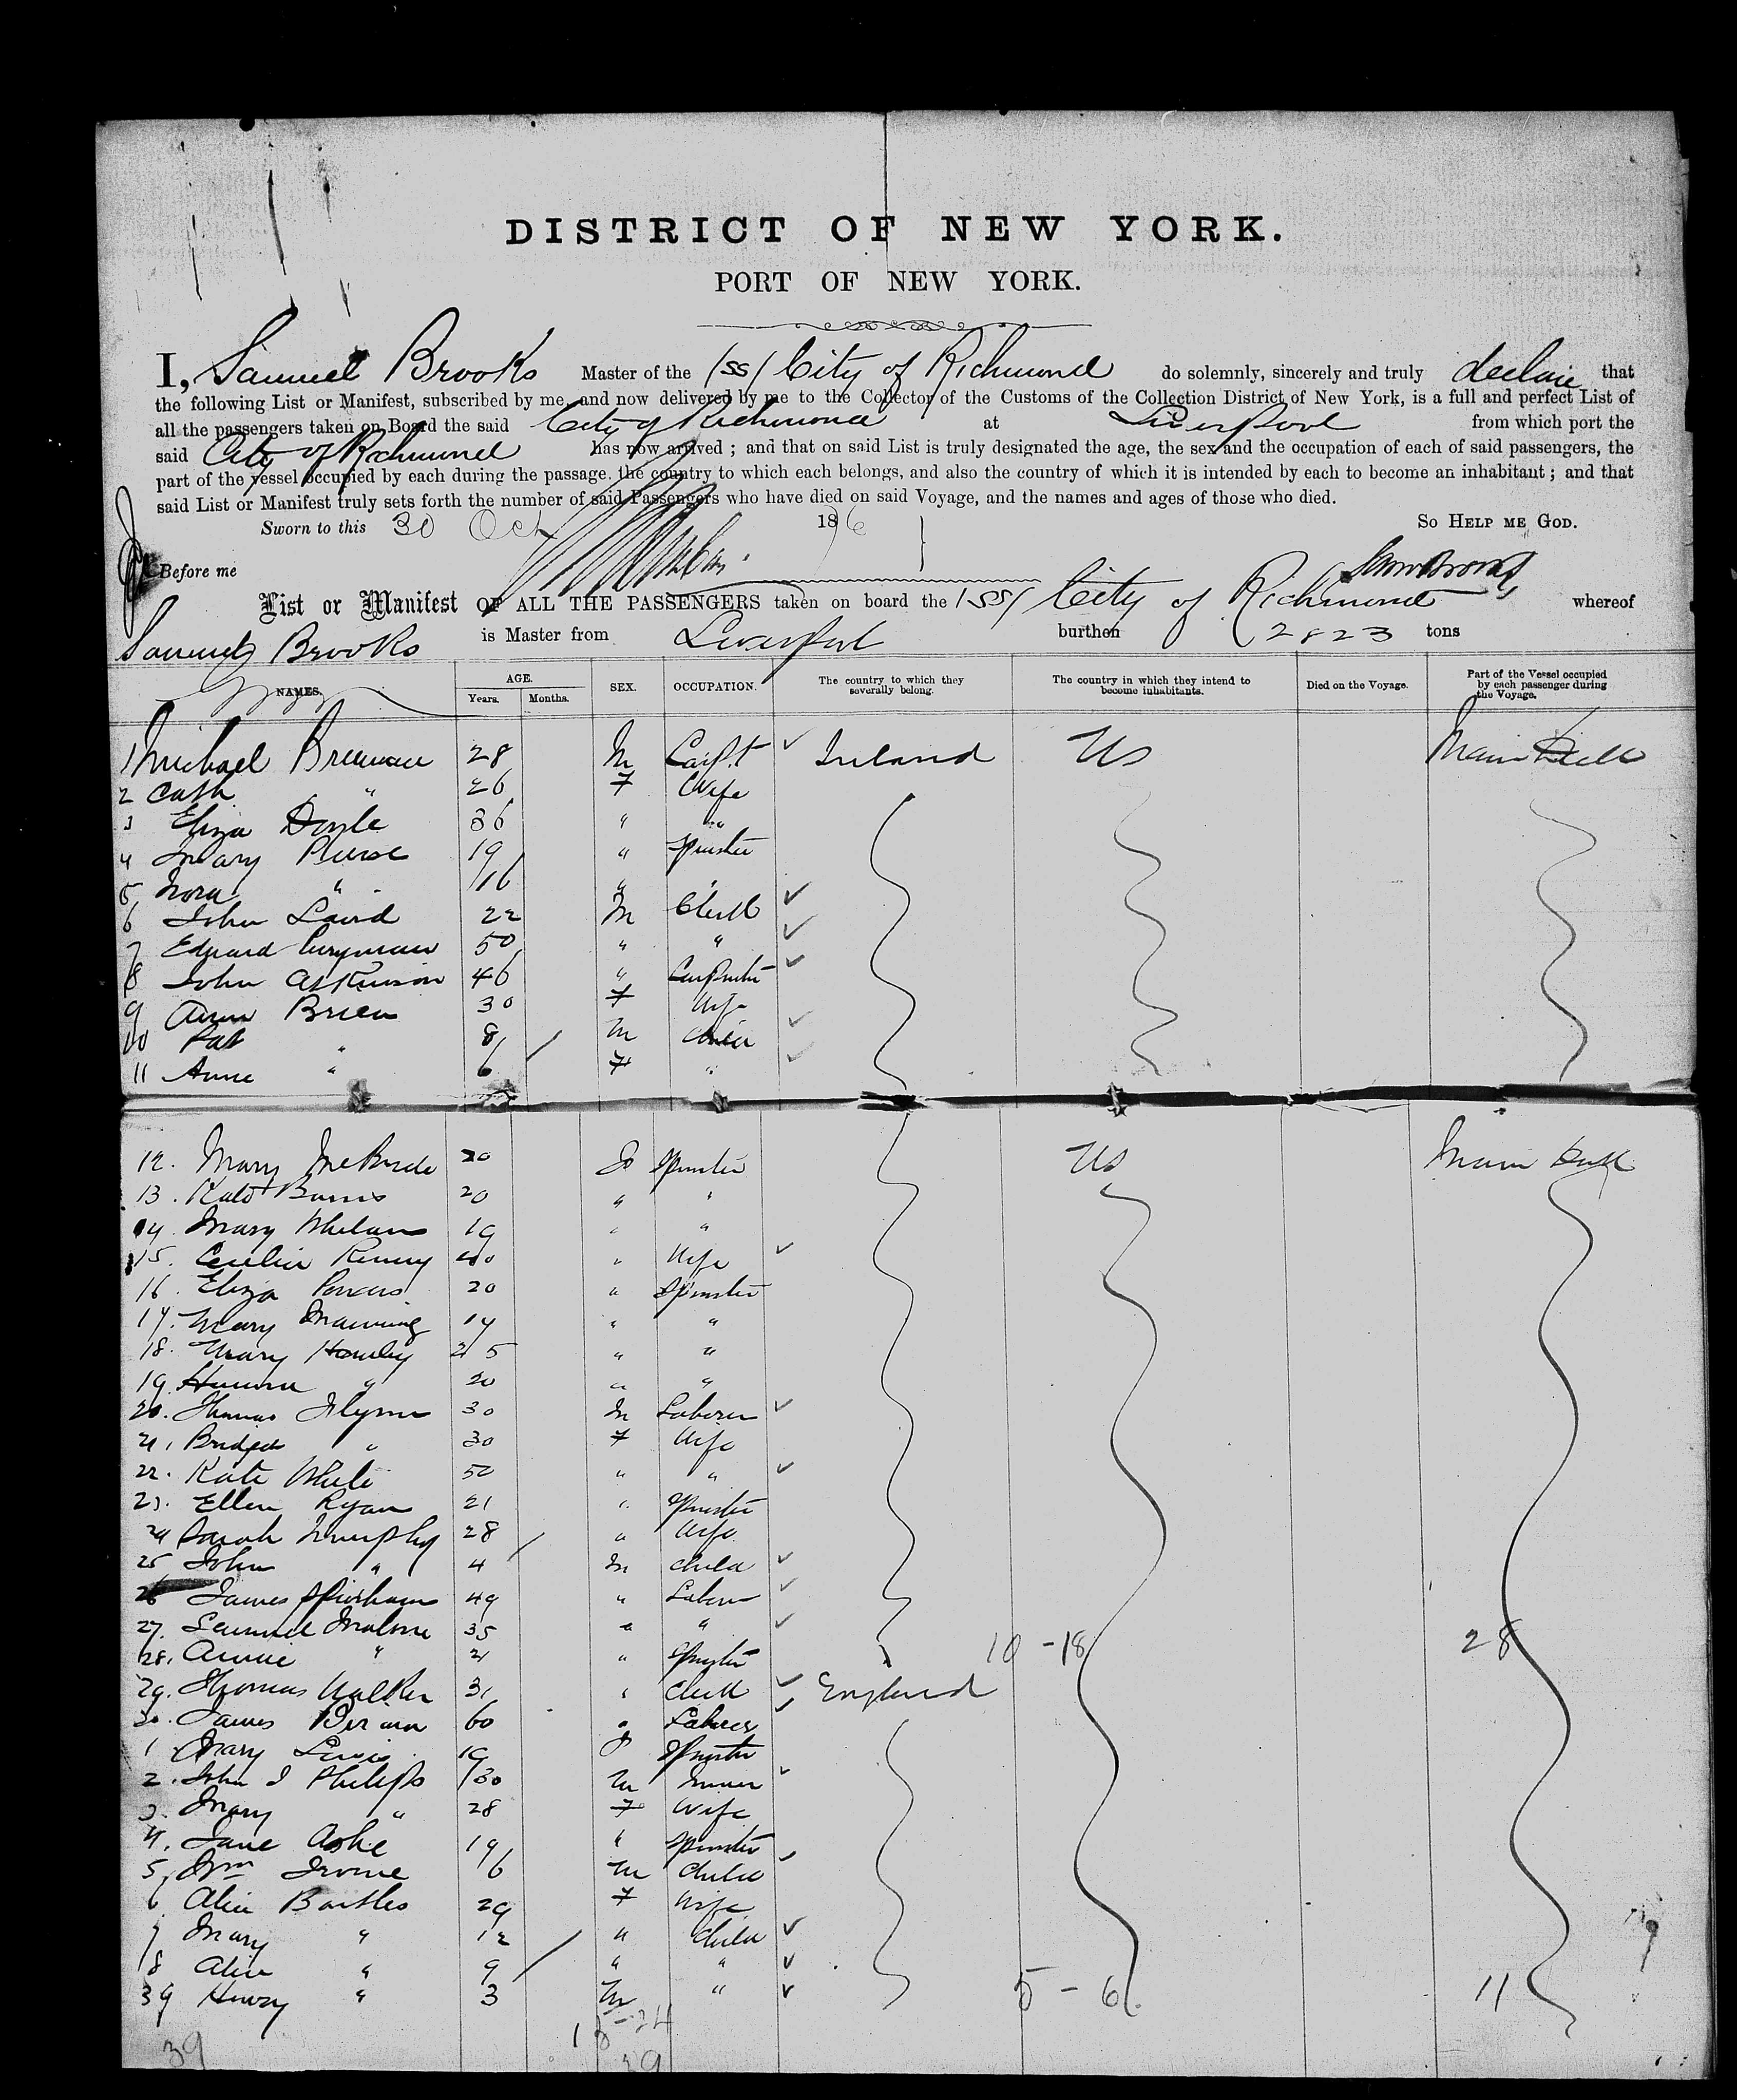 DISTRICT OF NEW YORK.
PORT OF NEW YORK.
I, Samuel Brooks Master of the (ss) City of Richmond do solemnly, sincerely and truly declare that
the following List or Manifest, subscribed by me, and now delivered by me to the Collector of the Customs of the Collection District of New York, is a full and perfect List of
all the passengers taken on Board the said City of Richmond at Liverpool from which port the
said City of Richmond has now arrived ; and that on said List is truly designated the age, the sex and the occupation of each of said passengers, the
part of the vessel occupied by each during the passage, the country to which each belongs, and also the country of which it is intended by each to become an inhabitant ; and that
said List or Manifest truly sets forth the number of said Passengers who have died on said Voyage, and the names and ages of those who died.
Sworn to this 30 Oct 1876 So HELP ME GOD.
Before me
List or Manifest OF ALL THE PASSENGERS taken on board the (ss) City of Richmond whereof
Samuel Brooks is Master from Liverpool burthen 2823 tons
NAMES. AGE. Years. Months. SEX. OCCUPATION. The country to which they severally belong. The country in which they intend to become inhabitants. Died on the Voyage. Part of the Vessel occupied by each passenger during the Voyage.
1 Michael Brennan 28 M ✓ Ireland US Main Deck
2 Cath " 26 F Wife
3 Eliza Doyle 36 " "
4 Mary 19 " Spinster
5 Nora " 16 " "
6 John Laird 22 M Clerk ✓
7 Edward 50 " " ✓
8 John Atkinson 46 " Carpenter ✓
9 Ann Brien 30 F Wife
10 Pat " 8 M Child ✓
11 Anne " 6 F " ✓
12. Mary McBride 20 Spinster US Main Deck
13. Kate Burns 20 " "
14. Mary Whelan 19 " "
15. Cecilia Kenny 40 " Wife ✓
16. Eliza 20 " Spinster
17. Mary Manning 17 " "
18. Mary 25 " "
19 " 20 " "
20. Thomas Flynn 30 M Laborer ✓
21. Bridget " 30 F Wife
22. Kate White 50 " " ✓
23. Ellen Ryan 21 " Spinster
24 Sarah Murphy 28 " Wife
25 John " 4 M Child ✓
26 James 49 " Laborer ✓
27. Samuel Malone 35 " " ✓
28. Annie " 21 " Spinster 10 - 18 28
29. Thomas Walker 31 " Clerk ✓ England
30. James 60 " Laborer ✓
1 Mary Lewis 19 F Spinster
2. John J Philips 30 M Miner ✓
3. Mary " 28 F Wife
4. Jane Ashe 19 " Spinster
5. Wm Irvine 6 M Child ✓
6 Alice Bartles 29 F Wife
7 Mary " 12 " Child ✓
8 Alice " 9 " " ✓
39 Henry " 3 M " ✓ 5 - 6 11
39 39